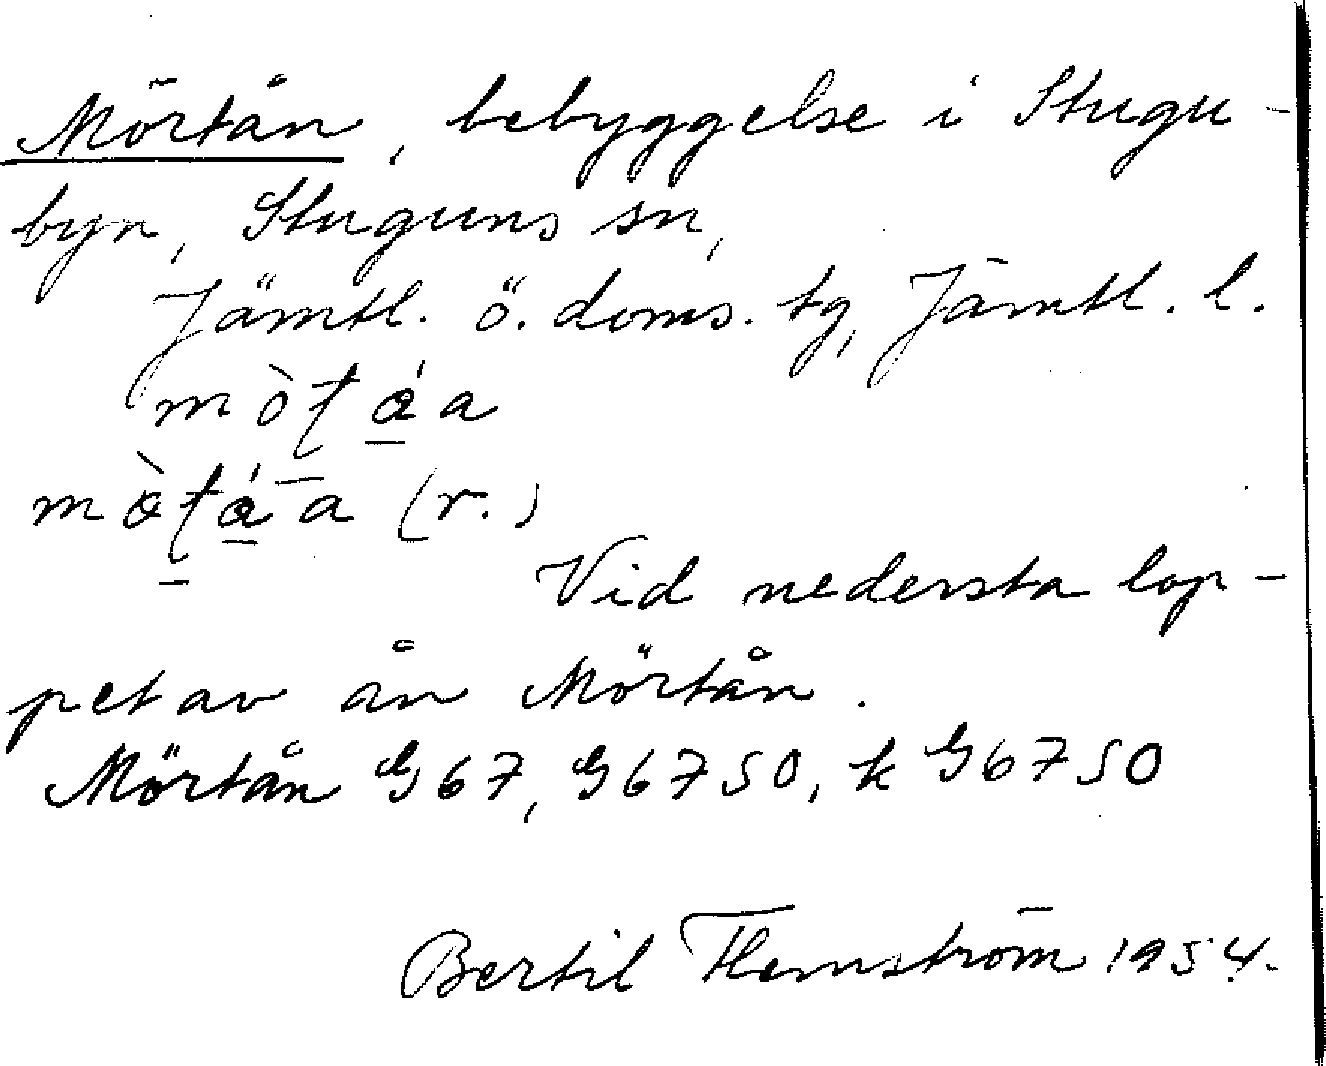 Mörtån, bebyggelse i Stugu-
byn, Stuguns sn,
Jämtl. ö. doms. tg, Jämtl. l.
(r.)
Vid nedersta lop-
pet av ån Mörtån.
Mörtån G67, G6750, k G6750
Bertil Flemström 1954.